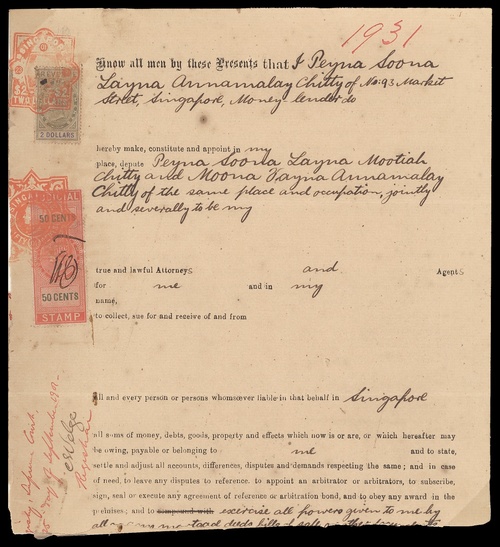 1931
Know all men by these Presents that I Peyna Soona
Layna Annamalay Chitty of No. 93 Market
Street, Singapore, Money lender do
hereby make, constitute and appoint in my
place, depute Peyna Soona Layna Mootiah
Chitty and Moona Vayna Annamalay
Chitty of the same place and occupation, jointly
and severally to be my
true and lawful Attorneys and Agents
for me and in my
name,
to collect, sue for and receive of and from
All and every person or persons whomsoever liable in that behalf in Singapore
all sums of money, debts, goods, property and effects which now is or are, or which hereafter may
be owing, payable or belonging to me and to state,
settle and adjust all accounts, differences, disputes and demands respecting the same; and in case
of need, to leave any disputes to reference. to appoint an arbitrator or arbitrators, to subscribe,
sign, seal or execute any agreement of reference or arbitration bond, and to obey any award in the
premises; and to exercise all powers given to me by
2 DOLLARS
50 CENTS
50 CENTS
STAMP